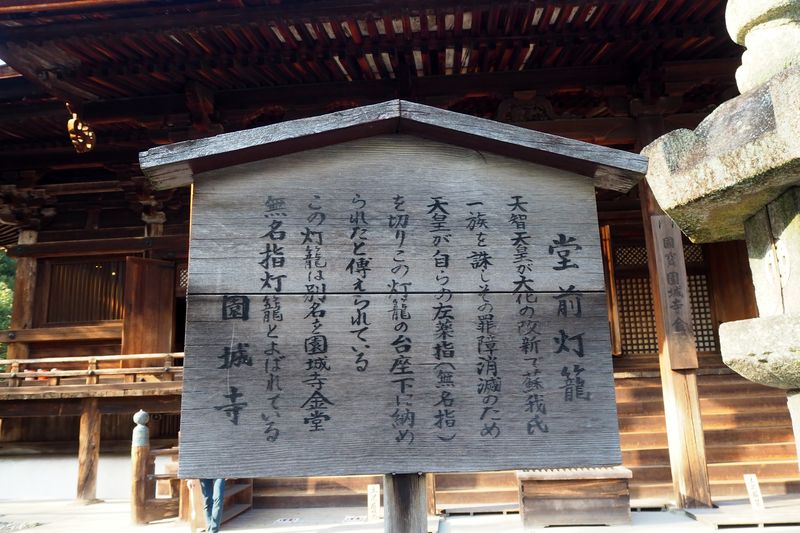 堂前灯籠
天智天皇が大化の改新で蘇我氏
一族を誅しその罪障消滅のため
天皇が自らの左薬指(無名指)
を切りこの灯籠の台座下に納め
られたと傳えられている
この灯籠は別名を園城寺金堂
無名指灯籠とよばれている
園城寺
国宝園城寺金